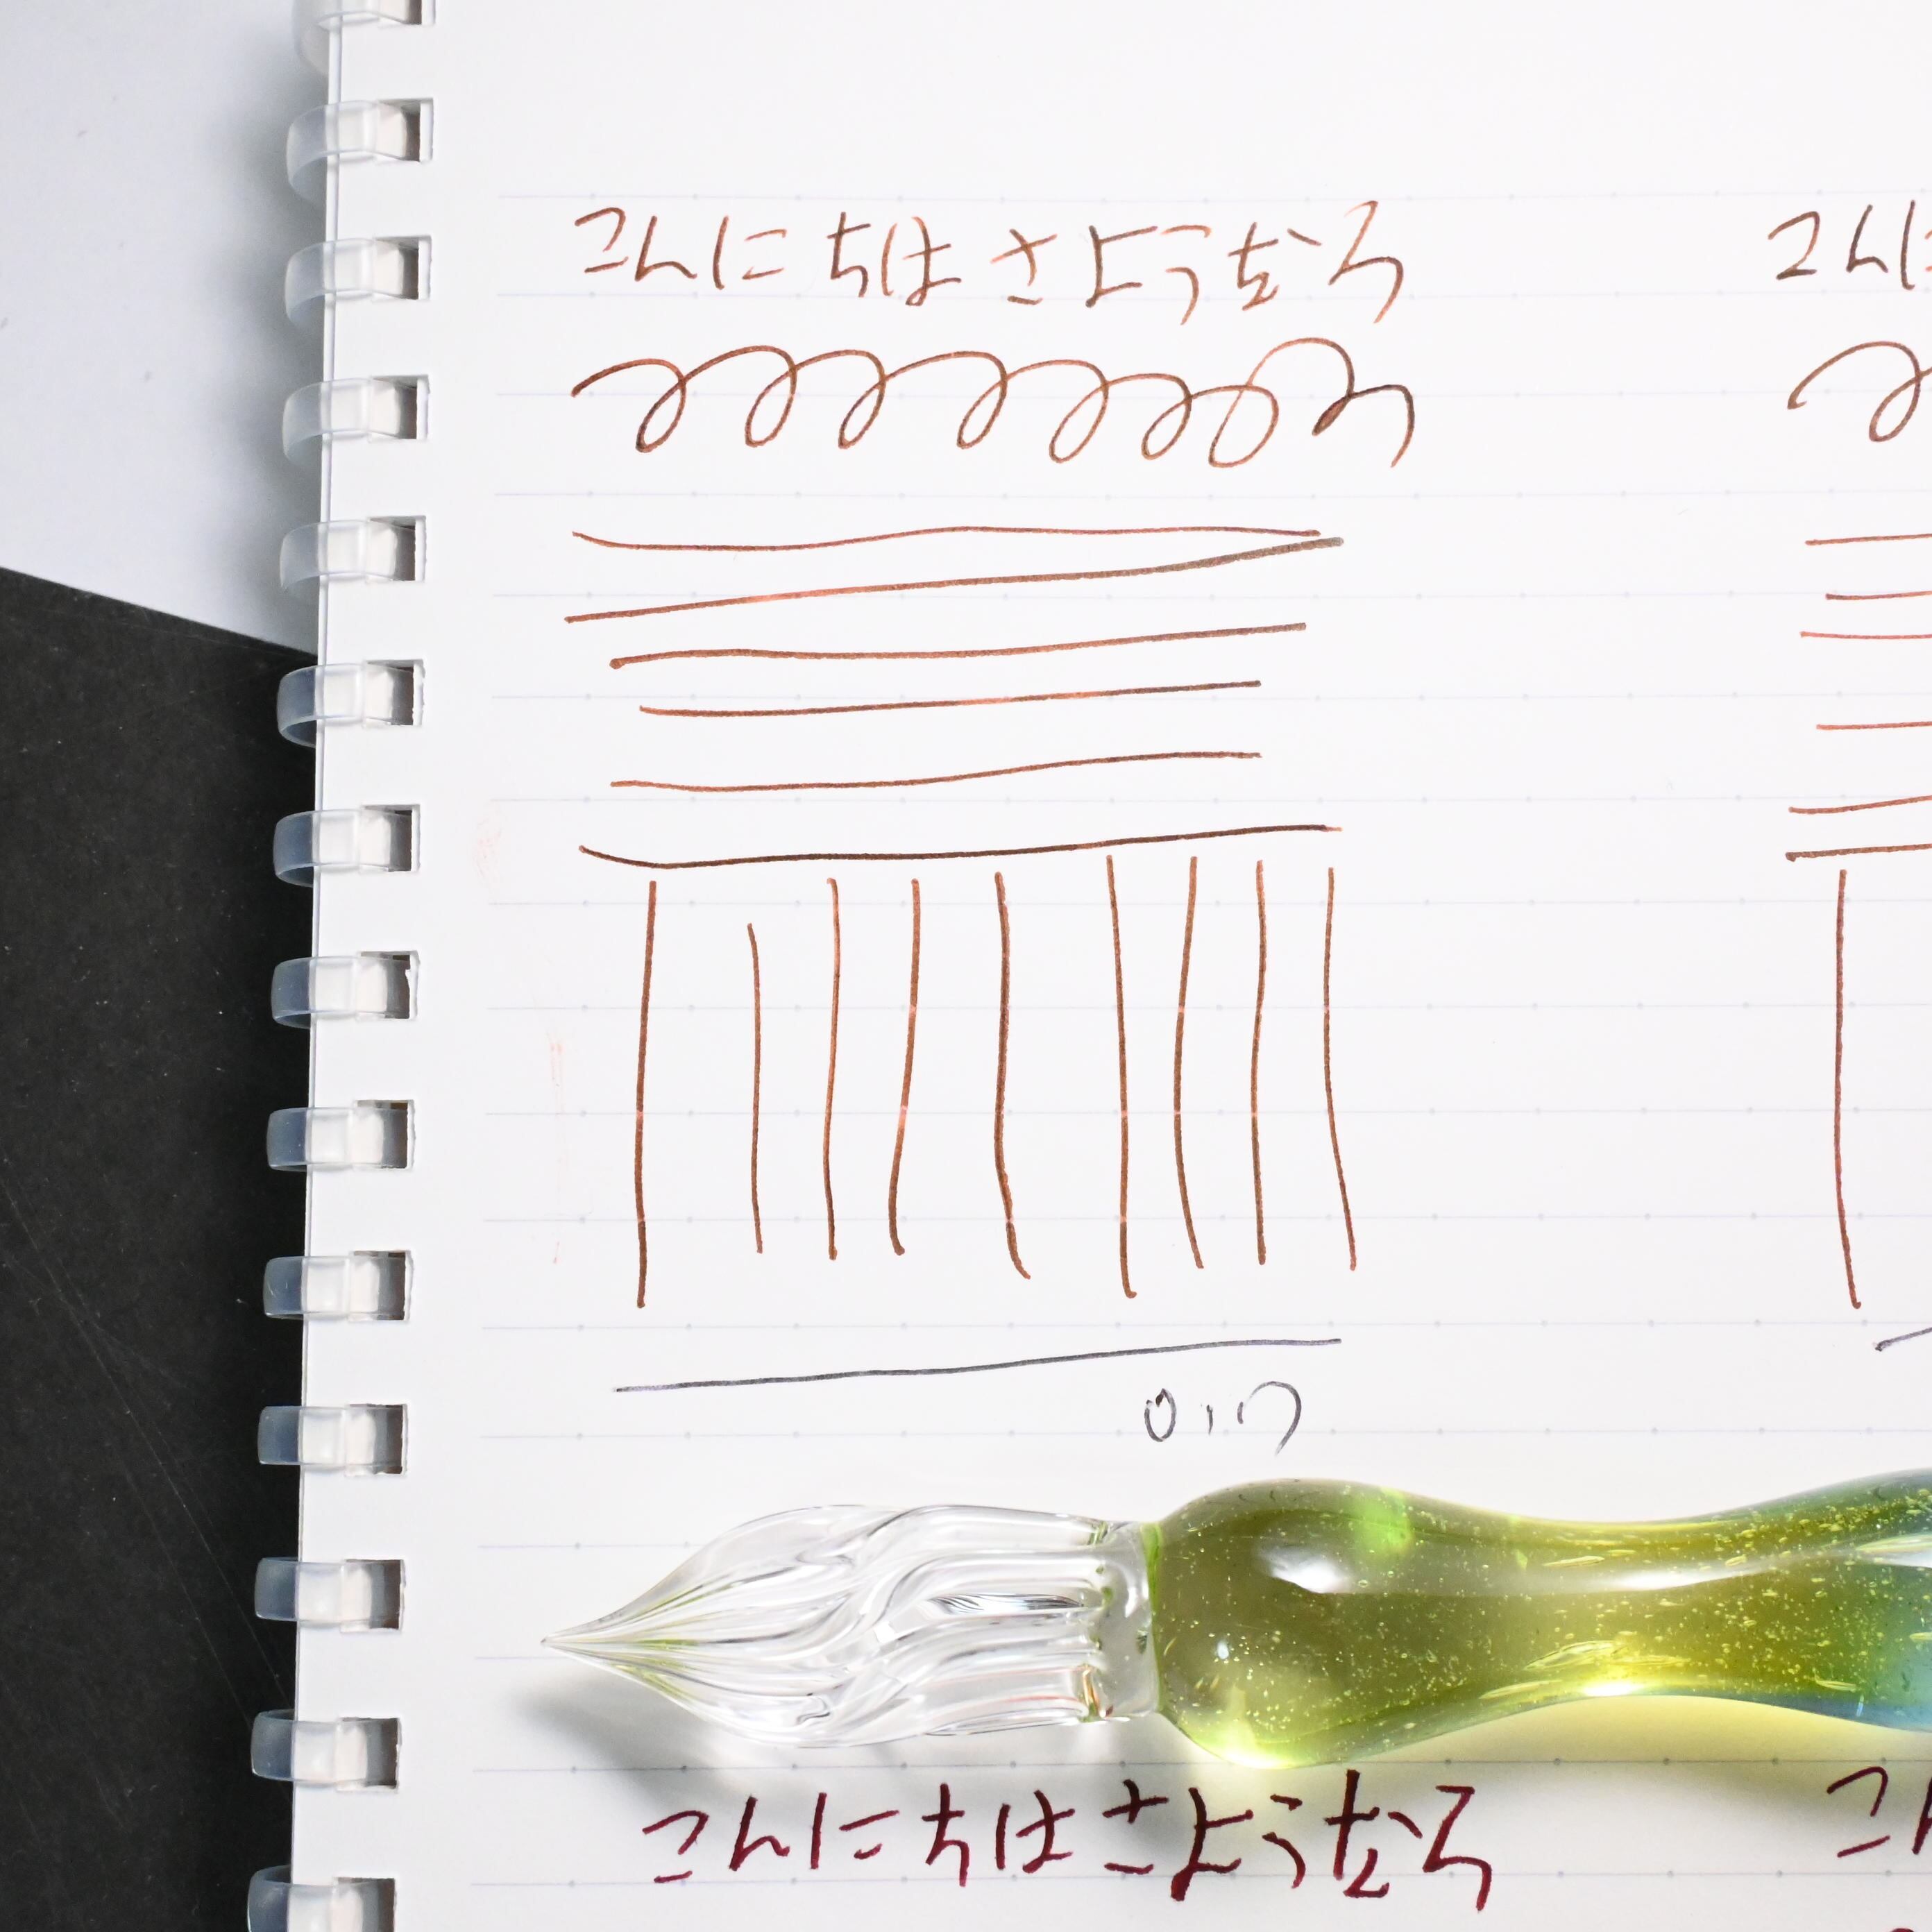 こんにちは さようなら
こんに
こんにちは さようなら
こん